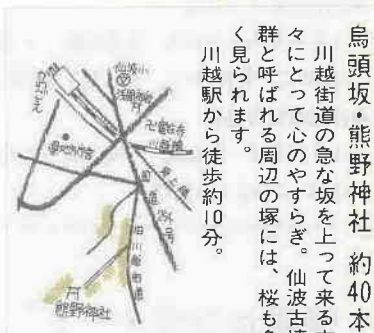 烏頭坂・熊野神社 約40本
川越街道の急な坂を上って来る
々にとって心のやすらぎ。仙波古墳
群と呼ばれる周辺の塚には、桜も
く見られます。
川越駅から徒歩約10分。
仙波小
浅間神社
川越線
東上線
国道254号
旧川越街道
熊野神社